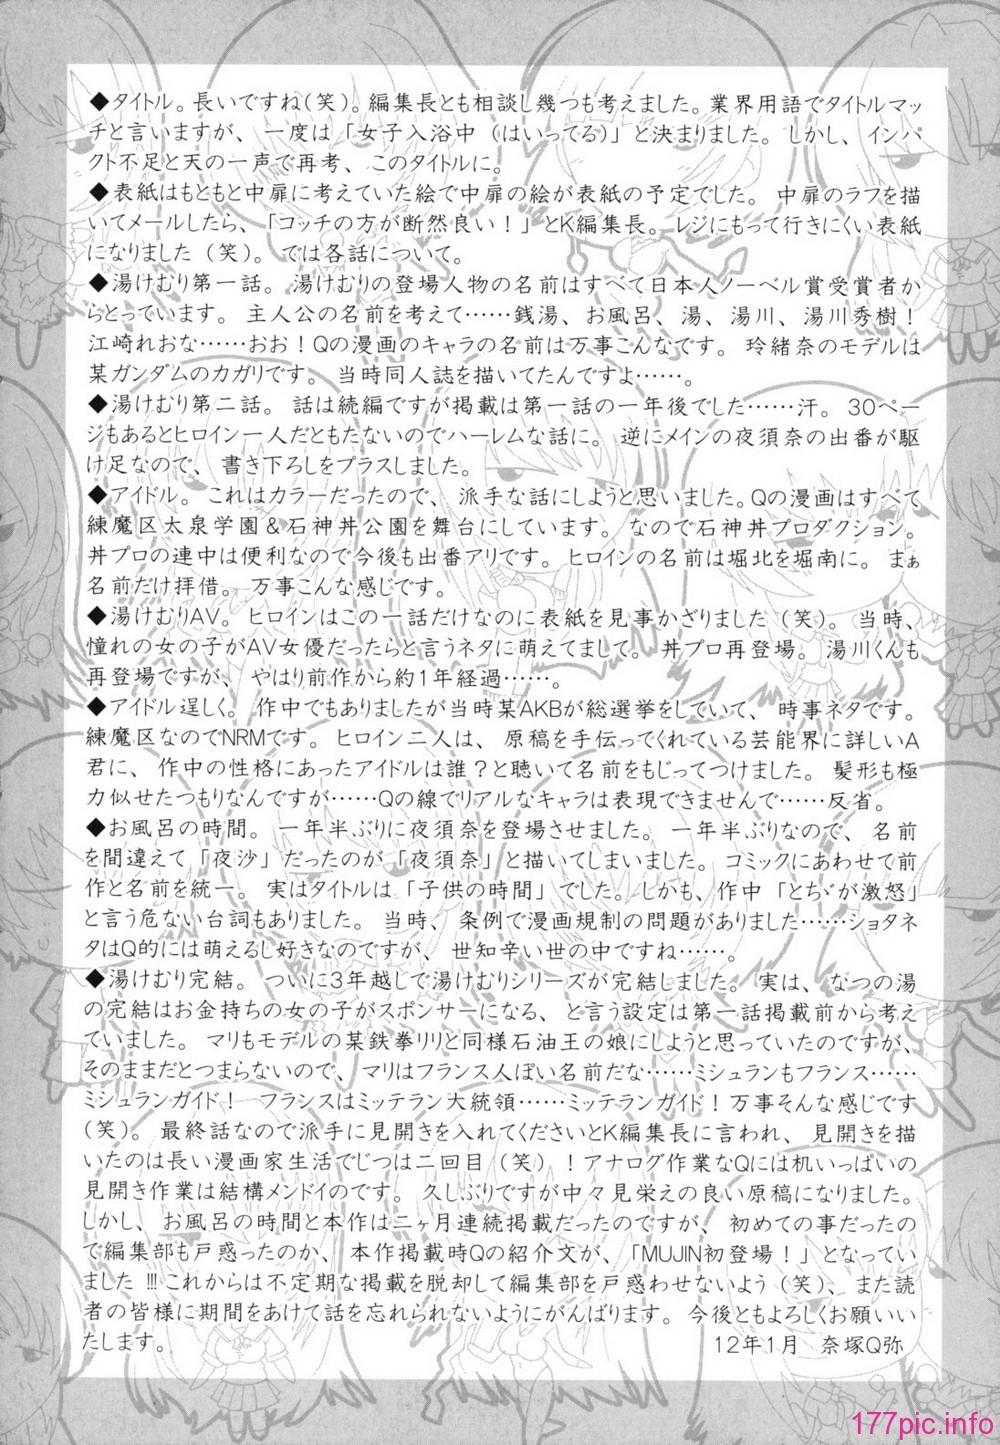 ◆タイトル。長いですね(笑)。編集長とも相談し幾つも考えました。業界用語でタイトルマッ
チと言いますが、一度は「女子入浴中（はいってる)」と決まりました。しかし、インパ
クト不足と天の一声で再考、このタイトルに。
◆表紙はもともと中扉に考えていた絵で中扉の絵が表紙の予定でした。中扉のラフを描
いてメールしたら、「コッチの方が断然良い！」とK編集長。レジにもって行きにくい表紙
になりました（笑)。では各話について。
◆湯けむり第一話。湯けむりの登場人物の名前はすべて日本人ノーベル賞受賞者か
らとっています。主人公の名前を考えて……銭湯、お風呂、湯、湯川、湯川秀樹！
江崎れおな……おお！Qの漫画のキャラの名前は万事こんなです。玲緒奈のモデルは
某ガンダムのカガリです。当時同人誌を描いてたんですよ……。
◆湯けむり第二話。話は続編ですが掲載は第一話の一年後でした……汗。30ペー
ジもあるとヒロイン一人だともたないのでハーレムな話に。逆にメインの夜須奈の出番が駆
け足なので、書き下ろしをプラスしました。
◆アイドル。これはカラーだったので、派手な話にしようと思いました。Qの漫画はすべて
練魔区太泉学園＆石神丼公園を舞台にしています。なので石神丼プロダクション。
丼プロの連中は便利なので今後も出番アリです。ヒロインの名前は堀北を堀南に。まぁ
名前だけ拝借。万事こんな感じです。
◆湯けむりAV。ヒロインはこの一話だけなのに表紙を見事かざりました（笑)。当時、
憧れの女の子がAV女優だったらと言うネタに萌えてまして。丼プロ再登場。湯川くんも
再登場ですが、やはり前作から約1年経過……。
◆アイドル逞しく。作中でもありましたが当時某AKBが総選挙をしていて、時事ネタです。
練魔区なのでNRMです。ヒロイン二人は、原稿を手伝ってくれている芸能界に詳しいA
君に、作中の性格にあったアイドルは誰？と聴いて名前をもじってつけました。髪形も極
力似せたつもりなんですが……Qの線でリアルなキャラは表現できませんで……反省。
◆お風呂の時間。一年半ぶりに夜須奈を登場させました。一年半ぶりなので、名前
を間違えて「夜沙」だったのが「夜須奈」と描いてしまいました。コミックにあわせて前
作と名前を統一。実はタイトルは「子供の時間」でした。しかも、作中「とぢが激怒」
と言う危ない台詞もありました。当時、条例で漫画規制の問題がありました……ショタネ
タはQ的には萌えるし好きなのですが、世知辛い世の中ですね……。
◆湯けむり完結。ついに3年越しで湯けむりシリーズが完結しました。実は、なつの湯
の完結はお金持ちの女の子がスポンサーになる、と言う設定は第一話掲載前から考え
ていました。マリもモデルの某鉄拳リリと同様石油王の娘にしようと思っていたのですが、
そのままだとつまらないので、マリはフランス人ぽい名前だな……ミシュランもフランス……
ミシュランガイド！　フランスはミッテラン大統領……ミッテランガイド！万事そんな感じです
(笑)。最終話なので派手に見開きを入れてくださいとK編集長に言われ、見開きを描
いたのは長い漫画家生活でじつは二回目（笑）！アナログ作業なQには机いっぱいの
見開き作業は結構メンドイのです。久しぶりですが中々見栄えの良い原稿になりました。
しかし、お風呂の時間と本作は二ヶ月連続掲載だったのですが、初めての事だったの
で編集部も戸惑ったのか、本作掲載時Qの紹介文が、「MUJIN初登場！」となってい
ました!!!これからは不定期な掲載を脱却して編集部を戸惑わせないよう（笑)、また読
者の皆様に期間をあけて話を忘れられないようにがんばります。今後ともよろしくお願いい
たします。
12年1月　奈塚Q弥
177pic.info